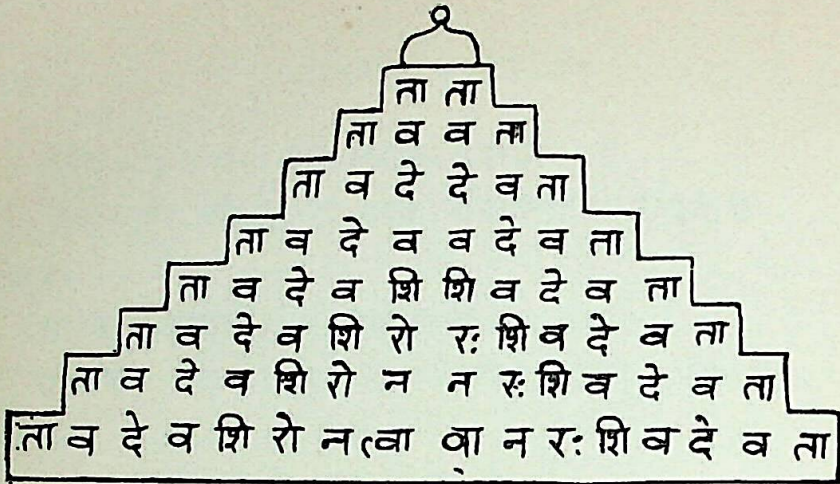 ता ता
ता व व ता
ता व दे दे व ता
ता व दे व व दे व ता
ता व दे व शि शि व दे व ता
ता व दे व शि रो रः शि व दे व ता
ता व दे व शि रो न न रः शि व दे व ता
ता व दे व शि रो न त्वा वा न रः शि व दे व ता